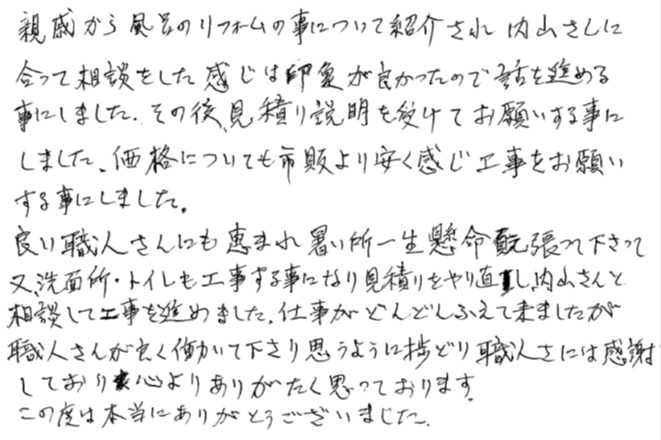 親戚から風呂のリフォームの事について紹介され内山さんに
合って相談をした感じは印象が良かったので話を進める
事にしました。その後、見積り説明を受けてお願いする事に
しました、価格についても市販より安く感じ工事をお願い
する事にしました。
良い職人さんにも恵まれ暑い所一生懸命頑張って下さって
又、洗面所・トイレも工事する事になり見積りをやり直し、内山さんと
相談して工事を進めました。仕事がどんどんふえて来ましたが
職人さんが良く働いて下さり思うように捗どり職人さには感謝
しており心よりありがたく思っております。
この度は本当にありがとうございました。